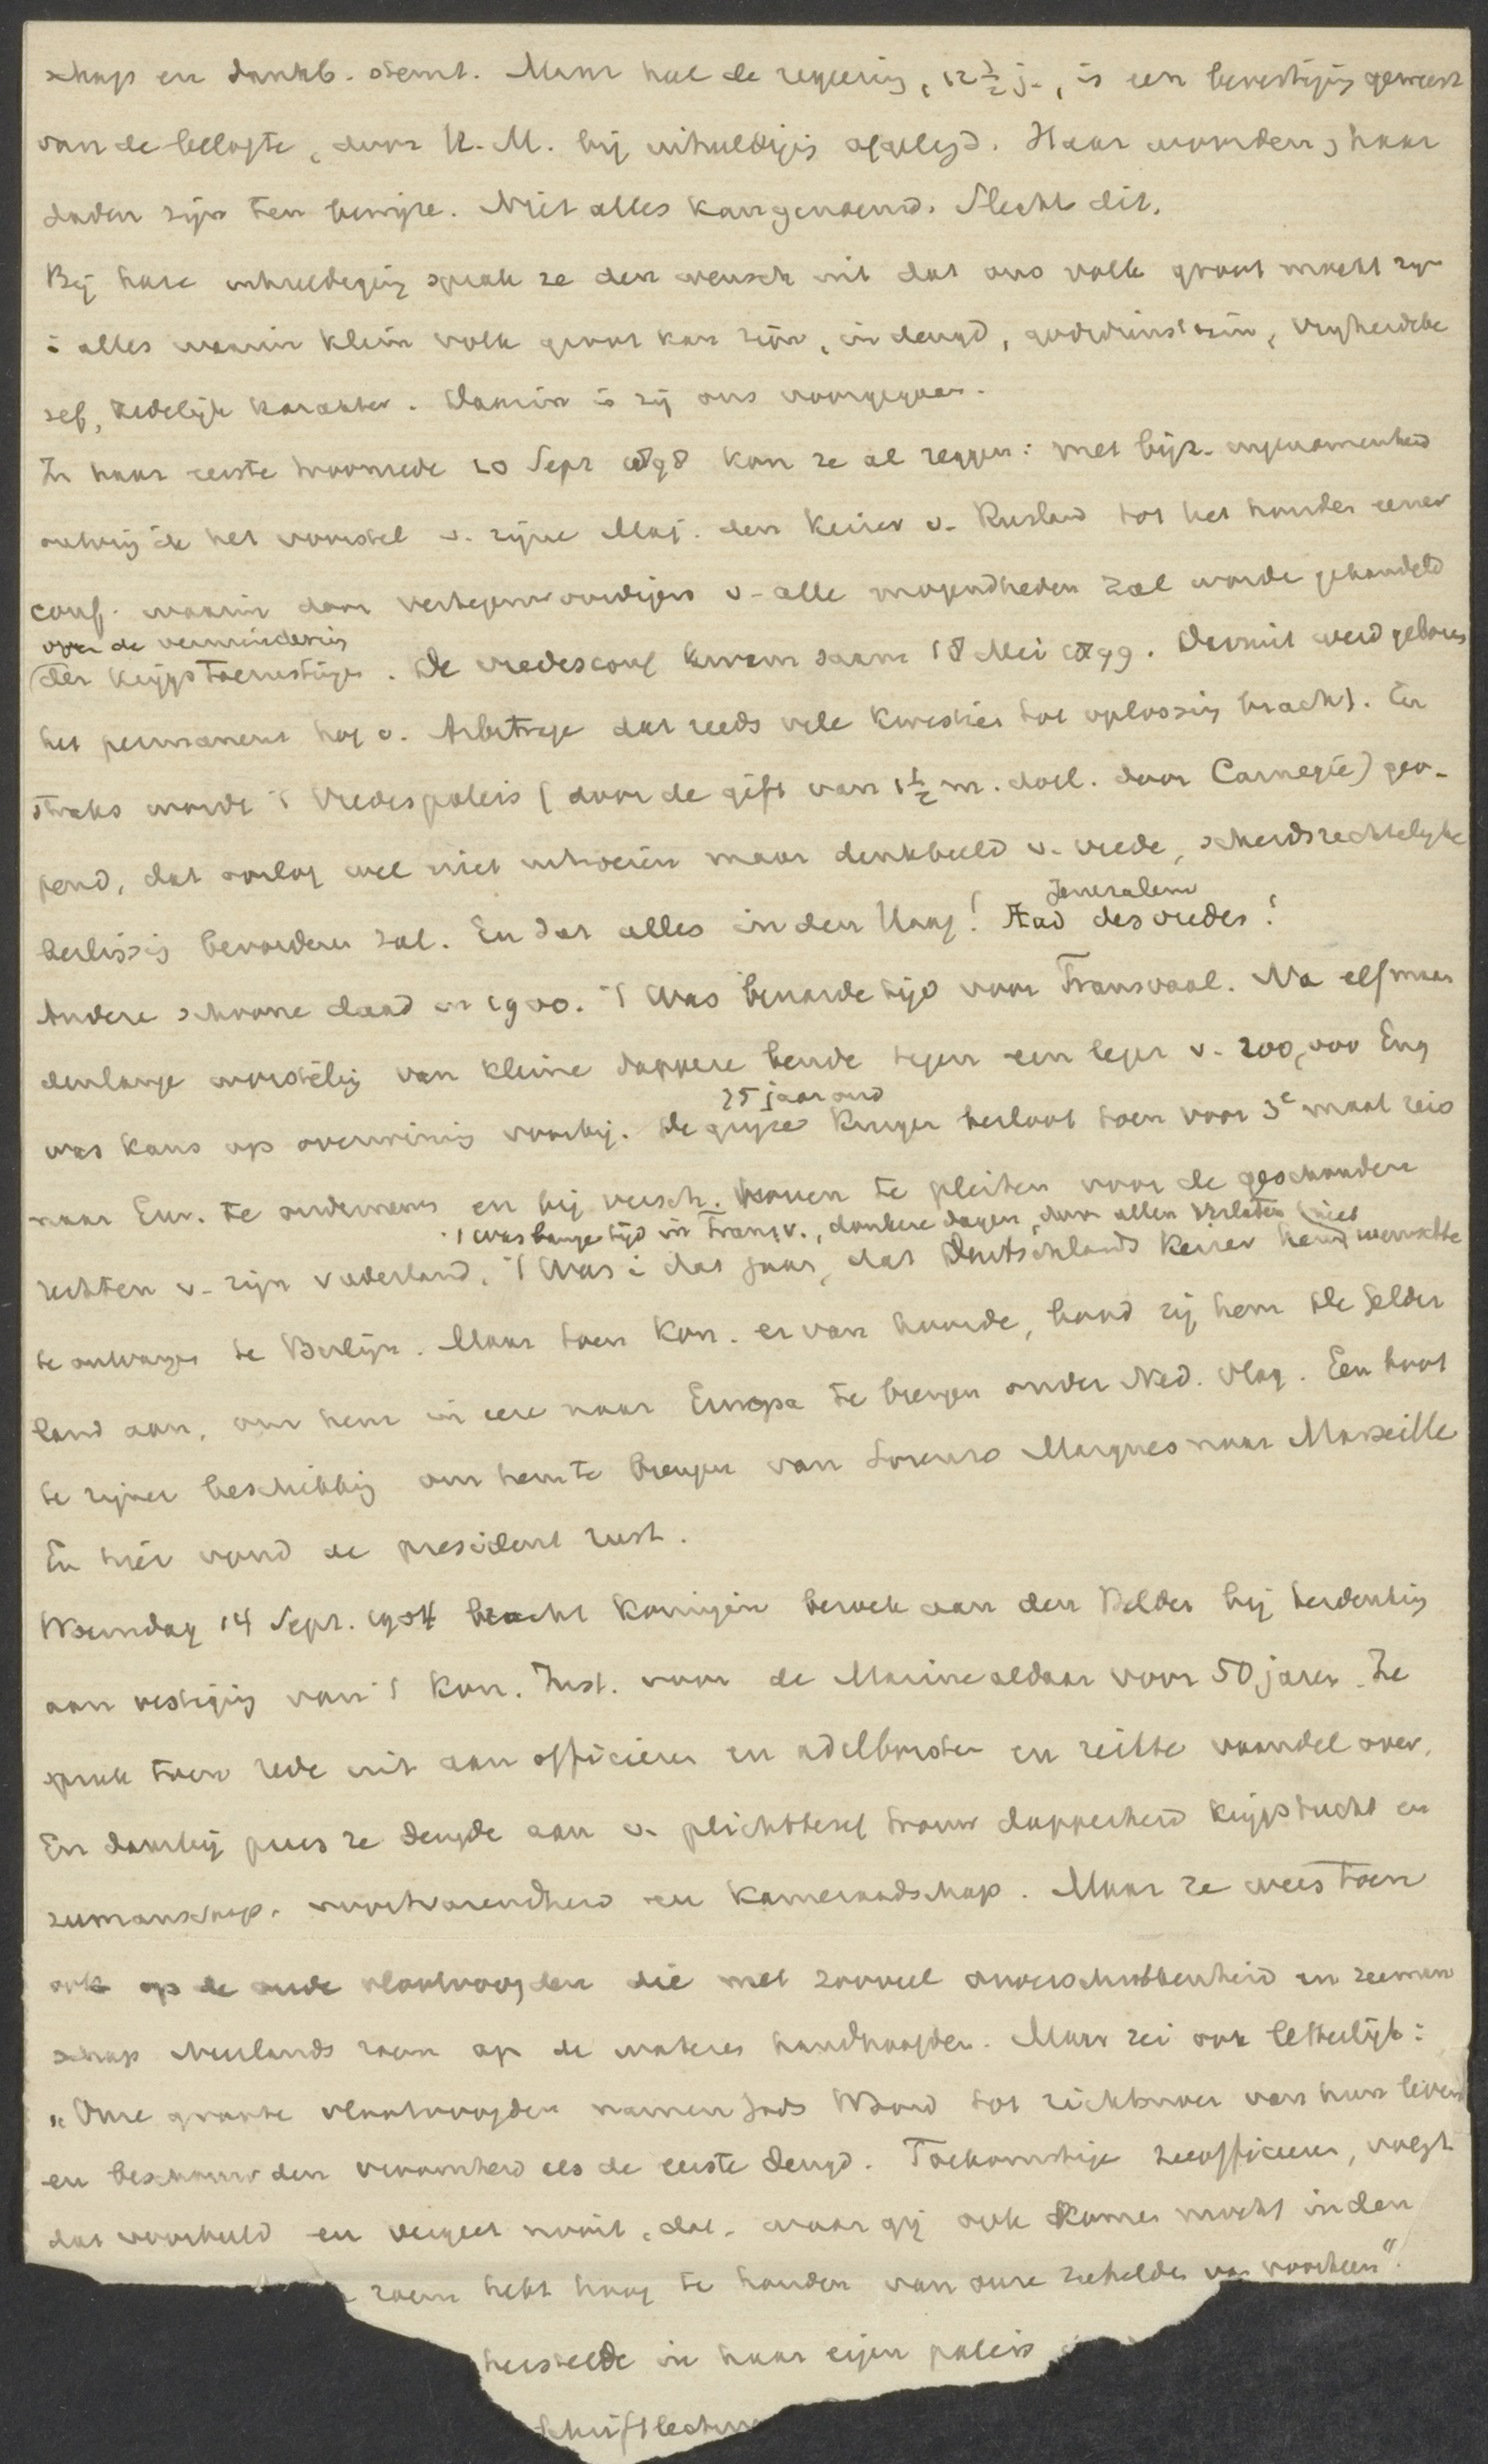 schap en dankb. stemt. Maar hae de regeering, 12½ j., is een bevestiging geweest
van de belofte, door H. M. bij inhuldigig afgelegd. Haar woorden, haar
daden zijn ten bewijze. Niet alles kan genoemd. Slechts dit.
Bij hare inhuldiging sprak ze den wensch uit dat ons volk groot mocht zijn
i alles waarin klein volk groot kan zijn, in deugd, godsdienstzin, vrijheidsbe
sef, zedelijk karakter. Daarin is zij ons voorgegaan.
In haar eerste troonrede 20 Sept 1898 kon ze al zeggen: met bijz. ingenomenheid
ontving ik het voorstel v. zijne Maj. den Keizer v. Rusland tot het houden eener
conf. waarin door vertegenwoordigers v. alle mogendheden zal worde gehandeld
over de vermindering
der krijgstoerustingen. De vredesconf kwam saam 18 Mei 1899. Daaruit werd geboren
het permanent hof v. Arbitrage dat reeds vele kwesties tot oplossing bracht. En
straks wordt 't Vredespaleis (door de gift van 1½ m. doll. door Carnegie) geo-
pend, dat oorlog wel niet uitroeien maar denkbeeld v. vrede, scheidsrechtelijke
beslissig bevorderen zal. En dat alles in den Haag! Jerusalem
Stad des vredes!
Andere schoone daad in 1900. 't Was benarde tijd voor Transvaal. Na elf maan
denlange worstelig van kleine dappere bende tegen een leger v. 200,000 Eng
was kans op overwinnig voorbij. De grijze 75 jaar oud Kruger besloot toen voor 3e maal reis
naar Eur. te ondernemen en bij versch. hoven te pleiten voor de geschonden
rechten v. zijn vaderland. 't Was bange tijd in Transv., donkere dagen, door allen verlaten
't Was i dat jaar, dat Deutschlands Keizer hem niet wenschte
te ontvangen te Berlijn. Maar toen Kon. er van hoorde, bood zij hem de Gelder
land aan, om hem in eere naar Europa te brengen onder Ned. vlag. Een boot
te zijner beschikkig om hem te brengen van Lorenzo Marques naar Marseille
En hier vond de president rust.
Woensdag 14 Sept. 1904 bracht Koningin bezoek aan den Helder bij herdenkig
aan vestiging van 't Kon. Inst. voor de Marine aldaar voor 50 jaren. Ze
sprak toen rede uit aan officieren en adelborsten en reikte vaandel over.
En daarbij prees ze deugde aan v. plichtbesef trouw dapperheid krijgstucht en
zeemanschap, voortvarendheid en kameraadschap. Maar ze wees toen
ook op de oude vlootvoogden die met zooveel onverschrokkenheid en zeeman
schap Neerlands roem op de wateren handhaafden. Maar zei ook letterlijk:
„Onze groote vlootvoogden namen Gods Woord tot richtsnoer van hun leven
en beschouwden vroomheid als de eerste deugd. Toekomstige zeeofficieren, volgt
dat voorbeeld en vergeet nooit, dat, waar gij ook komen mocht in den
roem hebt hoog te houden van onze zeehelden van voorheen".
herstelde in haar eigen paleis
Schriftlectuur